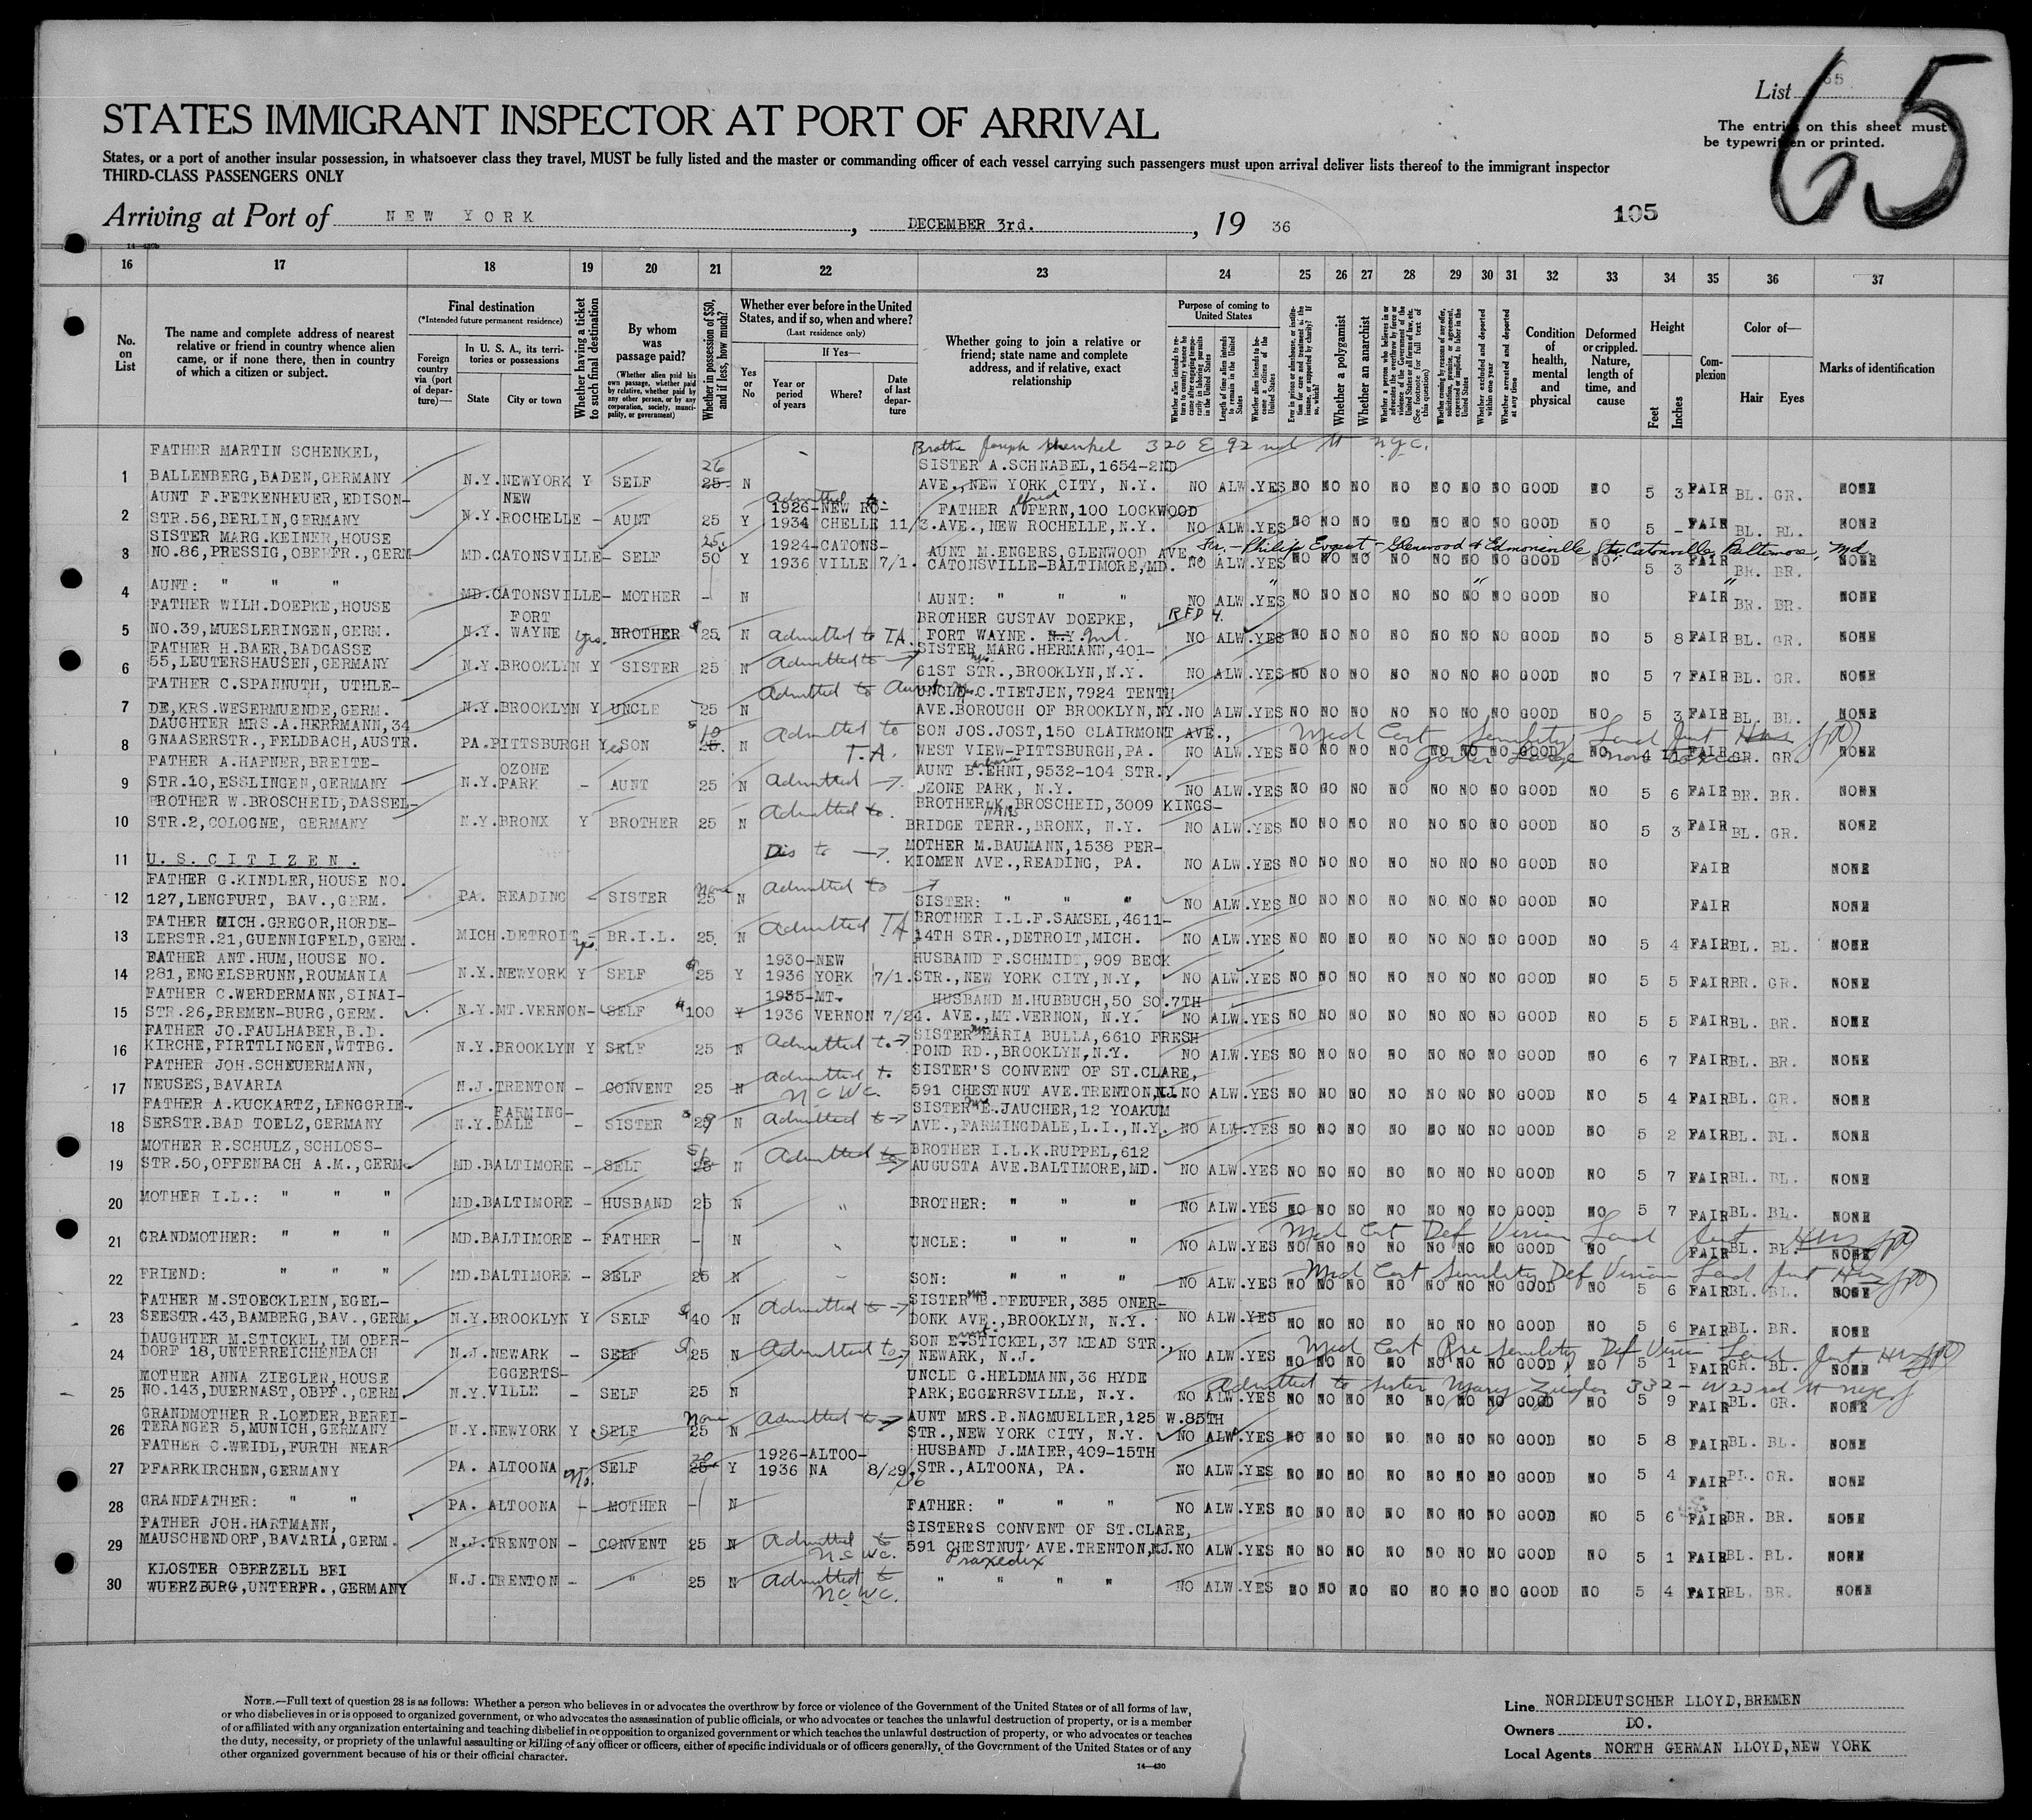 List 65
65
The entries on this sheet must
be typewritten or printed.
STATES IMMIGRANT INSPECTOR AT PORT OF ARRIVAL
States, or a port of another insular possession, in whatsoever class they travel, MUST be fully listed and the master or commanding officer of each vessel carrying such passengers must upon arrival deliver lists thereof to the immigrant inspector
THIRD-CLASS PASSENGERS ONLY
Arriving at Port of NEW YORK, DECEMBER 3rd., 19 36
105
14—430b
16 17 18 19 20 21 22 23 24 25 26 27 28 29 30 31 32 33 34 35 36 37
No. on List
The name and complete address of nearest relative or friend in country whence alien came, or if none there, then in country of which a citizen or subject.
Final destination
(*Intended future permanent residence)
Foreign country via (port of departure)—
In U. S. A., its territories or possessions
State
City or town
Whether having a ticket to such final destination
By whom was passage paid?
(Whether alien paid his own passage, whether paid by relative, whether paid by any other person, or by any corporation, society, municipality, or government)
Whether in possession of $50, and if less, how much?
Whether ever before in the United States, and if so, when and where?
(Last residence only)
Yes or No
If Yes—
Year or period of years
Where?
Date of last departure
Whether going to join a relative or friend; state name and complete address, and if relative, exact relationship
Purpose of coming to United States
Whether alien intends to return to country whence he came after engaging temporarily in laboring pursuits in the United States
Length of time alien intends to remain in the United States
Whether alien intends to become a citizen of the United States
Ever in prison or almshouse or institution for care and treatment of the insane, or supported by charity? If so, which?
Whether a polygamist
Whether an anarchist
Whether a person who believes in or advocates the overthrow by force or violence of the Government of the United States or all forms of law, etc. (See footnote for full text of this question)
Whether coming by reasons of any offer, solicitation, promise, or agreement, expressed or implied, to labor in the United States
Whether excluded and deported within one year
Whether arrested and deported at any time
Condition of health, mental and physical
Deformed or crippled. Nature, length of time, and cause
Height
Feet
Inches
Complexion
Color of—
Hair
Eyes
Marks of identification
FATHER MARTIN SCHENKEL, Brother Joseph Schenkel 320 E 92nd St N.Y.C.
26 SISTER A.SCHNABEL,1654-2ND
1 BALLENBERG,BADEN,GERMANY N.Y. NEWYORK Y SELF 25 N AVE.,NEW YORK CITY, N.Y. NO ALW.YES NO NO NO NO NO NO NO GOOD NO 5 3 FAIR BL. GR. NONE
AUNT F.FETKENHEUER,EDISON- NEW Admitted to 1926-NEW RO- FATHER A fred FERN,100 LOCKWOOD
2 STR.56,BERLIN,GERMANY N.Y. ROCHELLE - AUNT 25 Y 1934 CHELLE 11/3. AVE., NEW ROCHELLE,N.Y. NO ALW.YES NO NO NO NO NO NO NO GOOD NO 5 - FAIR BL. BL. NONE
SISTER MARG.KEINER,HOUSE 25. 1924-CATONS- AUNT M.ENGERS,GLENWOOD AVE., Philip - Glenwood & Edmondville Sts. Catonsville, Baltimore, Md.
3 NO.86,PRESSIG,OBERFR.,GERM MD. CATONSVILLE- SELF 50 Y 1936 VILLE 7/1. CATONSVILLE-BALTIMORE,MD. NO ALW.YES NO NO NO NO NO NO NO GOOD NO 5 3 FAIR BR. BR. NONE
4 AUNT: " " " MD. CATONSVILLE- MOTHER - N AUNT: " " " NO ALW.YES NO NO NO NO NO NO NO GOOD NO FAIR BR. BR. NONE
FATHER WILH.DOEPKE,HOUSE FORT BROTHER GUSTAV DOEPKE, RFD 4.
5 NO.39,MUESLERINGEN,GERM. N.Y. WAYNE yes. BROTHER $ 25. N Admitted to T.A. FORT WAYNE. N.Y. Ind. NO ALW.YES NO NO NO NO NO NO NO GOOD NO 5 8 FAIR BL. GR. NONE
FATHER H.BAER,BADGASSE SISTER Mrs. MARG.HERMANN,401-
6 55,LEUTERSHAUSEN,GERMANY N.Y. BROOKLYN Y SISTER 25 N Admitted to 61ST STR.,BROOKLYN,N.Y. NO ALW.YES NO NO NO NO NO NO NO GOOD NO 5 7 FAIR BL. GR. NONE
FATHER C.SPANNUTH, UTHLE- Admitted to Aunt Mrs. UNCLE C.TIETJEN,7924 TENTH
7 DE,KRS.WESERMUENDE,GERM. N.Y. BROOKLYN Y UNCLE 25 N AVE.BOROUGH OF BROOKLYN,NY. NO ALW.YES NO NO NO NO NO NO NO GOOD NO 5 3 FAIR BL. BL. NONE
DAUGHTER MRS.A.HERRMANN,34 $ 10 Admitted to SON JOS.JOST,150 CLAIRMONT AVE., Med Cert Senility
8 GNAASERSTR.,FELDBACH,AUSTR. PA. PITTSBURGH Yes SON 25. N T.A. WEST VIEW-PITTSBURGH,PA. NO ALW.YES NO NO NO NO NO NO NO GOOD NO 4 11 FAIR GR. GR. NONE
FATHER A.HAFNER,BREITE- OZONE AUNT Barbara EHNI,9532-104 STR.,
9 STR.10,ESSLINGEN,GERMANY N.Y. PARK - AUNT 25 N Admitted OZONE PARK, N.Y. NO ALW.YES NO NO NO NO NO NO NO GOOD NO 5 6 FAIR BR. BR. NONE
BROTHER W.BROSCHEID,DASSEL- Admitted to BROTHER Hans K.BROSCHEID,3009 KINGS-
10 STR.2,COLOGNE, GERMANY N.Y. BRONX Y BROTHER 25 N BRIDGE TERR.,BRONX, N.Y. NO ALW.YES NO NO NO NO NO NO NO GOOD NO 5 3 FAIR BL. GR. NONE
Dis to MOTHER M.BAUMANN,1538 PER-
11 U.S.CITIZEN. KIOMEN AVE.,READING, PA. NO ALW.YES NO NO NO NO NO NO NO GOOD NO FAIR NONE
FATHER G.KINDLER,HOUSE NO. None Admitted to
12 127,LENGFURT, BAV.,GERM. PA. READING - SISTER 25 N SISTER: " " " NO ALW.YES NO NO NO NO NO NO NO GOOD NO FAIR NONE
FATHER MICH.GREGOR,HORDE- Admitted TA BROTHER I.L.F.SAMSEL,4611-
13 LERSTR.21,GUENNIGFELD,GERM. MICH. DETROIT - yes. BR.I.L. 25. N 14TH STR.,DETROIT,MICH. NO ALW.YES NO NO NO NO NO NO NO GOOD NO 5 4 FAIR BL. BL. NONE
FATHER ANT.HUM,HOUSE NO. 1930-NEW HUSBAND F.SCHMIDT,909 BECK
14 281,ENGELSBRUNN,ROUMANIA N.Y. NEWYORK Y SELF $ 25 Y 1936 YORK 7/1. STR.,NEW YORK CITY,N.Y. NO ALW.YES NO NO NO NO NO NO NO GOOD NO 5 5 FAIR BR. GR. NONE
FATHER C.WERDERMANN,SINAI- 1935-MT. HUSBAND M.HUBBUCH,50 SO.7TH
15 STR.26,BREMEN-BURG,GERM. N.Y. MT.VERNON- SELF 100 Y 1936 VERNON 7/24. AVE.,MT.VERNON, N.Y. NO ALW.YES NO NO NO NO NO NO NO GOOD NO 5 5 FAIR BL. BR. NONE
FATHER JO.FAULHABER,B.D. SISTER Mrs. MARIA BULLA,6610 FRESH
16 KIRCHE,FIRTTLINGEN,WTTBG. N.Y. BROOKLYN Y SELF 25 N Admitted to POND RD.,BROOKLYN,N.Y. NO ALW.YES NO NO NO NO NO NO NO GOOD NO 6 7 FAIR BL. BR. NONE
FATHER JOH.SCHEUERMANN, Admitted to SISTER'S CONVENT OF ST.CLARE,
17 NEUSES,BAVARIA N.J. TRENTON - CONVENT 25 N N C W C. 591 CHESTNUT AVE.TRENTON,N.J. NO ALW.YES NO NO NO NO NO NO NO GOOD NO 5 4 FAIR BL. GR. NONE
FATHER A.KUCKARTZ,LENGGRIE- FARMING- SISTER Mrs E.JAUCHER,12 YOAKUM
18 SERSTR.BAD TOELZ,GERMANY N.Y. DALE - SISTER 25 N Admitted to AVE.,FARMINGDALE,L.I.,N.Y. NO ALW.YES NO NO NO NO NO NO NO GOOD NO 5 2 FAIR BL. BL. NONE
MOTHER R.SCHULZ,SCHLOSS- Admitted to BROTHER I.L.K.RUPPEL,612
19 STR.50,OFFENBACH A.M.,GERM. MD. BALTIMORE - SELF 25 N AUGUSTA AVE.BALTIMORE,MD. NO ALW.YES NO NO NO NO NO NO NO GOOD NO 5 7 FAIR BL. BL. NONE
20 MOTHER I.L.: " " " MD. BALTIMORE - HUSBAND 25 N " BROTHER: " " " NO ALW.YES NO NO NO NO NO NO NO GOOD NO 5 7 FAIR BL. BL. NONE
Med Cert Def Vision
21 GRANDMOTHER: " " " MD. BALTIMORE - FATHER - N UNCLE: " " " NO ALW.YES NO NO NO NO NO NO NO GOOD NO FAIR BL. BL. NONE
Med Cert Senility Def Vision
22 FRIEND: " " " MD. BALTIMORE - SELF 25 N SON: " " " NO ALW.YES NO NO NO NO NO NO NO GOOD NO 5 6 FAIR BL. BL. NONE
FATHER M.STOECKLEIN,EGEL- Admitted to SISTER Mrs B.PFEUFER,385 ONER-
23 SEESTR.43,BAMBERG,BAV.,GERM. N.Y. BROOKLYN Y SELF $ 40 N DONK AVE.,BROOKLYN, N.Y. NO ALW.YES NO NO NO NO NO NO NO GOOD NO 5 6 FAIR BL. BR. NONE
DAUGHTER M.STICKEL,IM OBER- SON E.STICKEL,37 MEAD STR., Med Cert Pre senility Def Vision
24 DORF 18,UNTERREICHENBACH N.J. NEWARK - SELF 25 N Admitted to NEWARK, N.J. NO ALW.YES NO NO NO NO NO NO NO GOOD NO 5 1 FAIR GR. BL. NONE
MOTHER ANNA ZIEGLER,HOUSE EGGERTS- UNCLE G.HELDMANN,36 HYDE Admitted to sister Mary Ziegler 332 - W 23rd St nyc
25 NO.143,DUERNAST,OBPF.,GERM. N.Y. VILLE - SELF 25 N PARK,EGGERRSVILLE, N.Y. NO ALW.YES NO NO NO NO NO NO NO GOOD NO 5 9 FAIR BL. GR. NONE
GRANDMOTHER R.LOEDER,BEREI- None Admitted to AUNT MRS.B.NAGMUELLER,125 W.85TH
26 TERANGER 5,MUNICH,GERMANY N.Y. NEWYORK Y SELF 25 N STR.,NEW YORK CITY, N.Y. NO ALW.YES NO NO NO NO NO NO NO GOOD NO 5 8 FAIR BL. BL. NONE
FATHER C.WEIDL,FURTH NEAR 20 1926-ALTOO- HUSBAND J.MAIER,409-15TH
27 PFARRKIRCHEN,GERMANY PA. ALTOONA yes. SELF 25 Y 1936 NA 8/29/36 STR.,ALTOONA, PA. NO ALW.YES NO NO NO NO NO NO NO GOOD NO 5 4 FAIR BL. GR. NONE
28 GRANDFATHER: " " PA. ALTOONA - MOTHER - N FATHER: " " " NO ALW.YES NO NO NO NO NO NO NO GOOD NO 5 6 FAIR BR. BR. NONE
FATHER JOH.HARTMANN, SISTER&S CONVENT OF ST.CLARE,
29 MAUSCHENDORF,BAVARIA,GERM. N.J. TRENTON - CONVENT 25 N Admitted to N C W C. 591 CHESTNUT AVE.TRENTON,N.J. NO ALW.YES NO NO NO NO NO NO NO GOOD NO 5 1 FAIR BL. BL. NONE
KLOSTER OBERZELL BEI Praxedix
30 WUERZBURG,UNTERFR.,GERMANY N.J. TRENTON - " 25 N Admitted to N C W C. " " " " NO ALW.YES NO NO NO NO NO NO NO GOOD NO 5 4 FAIR BL. BR. NONE
NOTE.—Full text of question 28 is as follows: Whether a person who believes in or advocates the overthrow by force or violence of the Government of the United States or of all forms of law,
or who disbelieves in or is opposed to organized government, or who advocates the assassination of public officials, or who advocates or teaches the unlawful destruction of property, or is a member
of or affiliated with any organization entertaining and teaching disbelief in or opposition to organized government or which teaches the unlawful destruction of property, or who advocates or teaches
the duty, necessity, or propriety of the unlawful assaulting or killing of any officer or officers, either of specific individuals or of officers generally, of the Government of the United States or of any
other organized government because of his or their official character.
14—430
Line NORDDEUTSCHER LLOYD,BREMEN
Owners DO.
Local Agents NORTH GERMAN LLOYD,NEW YORK